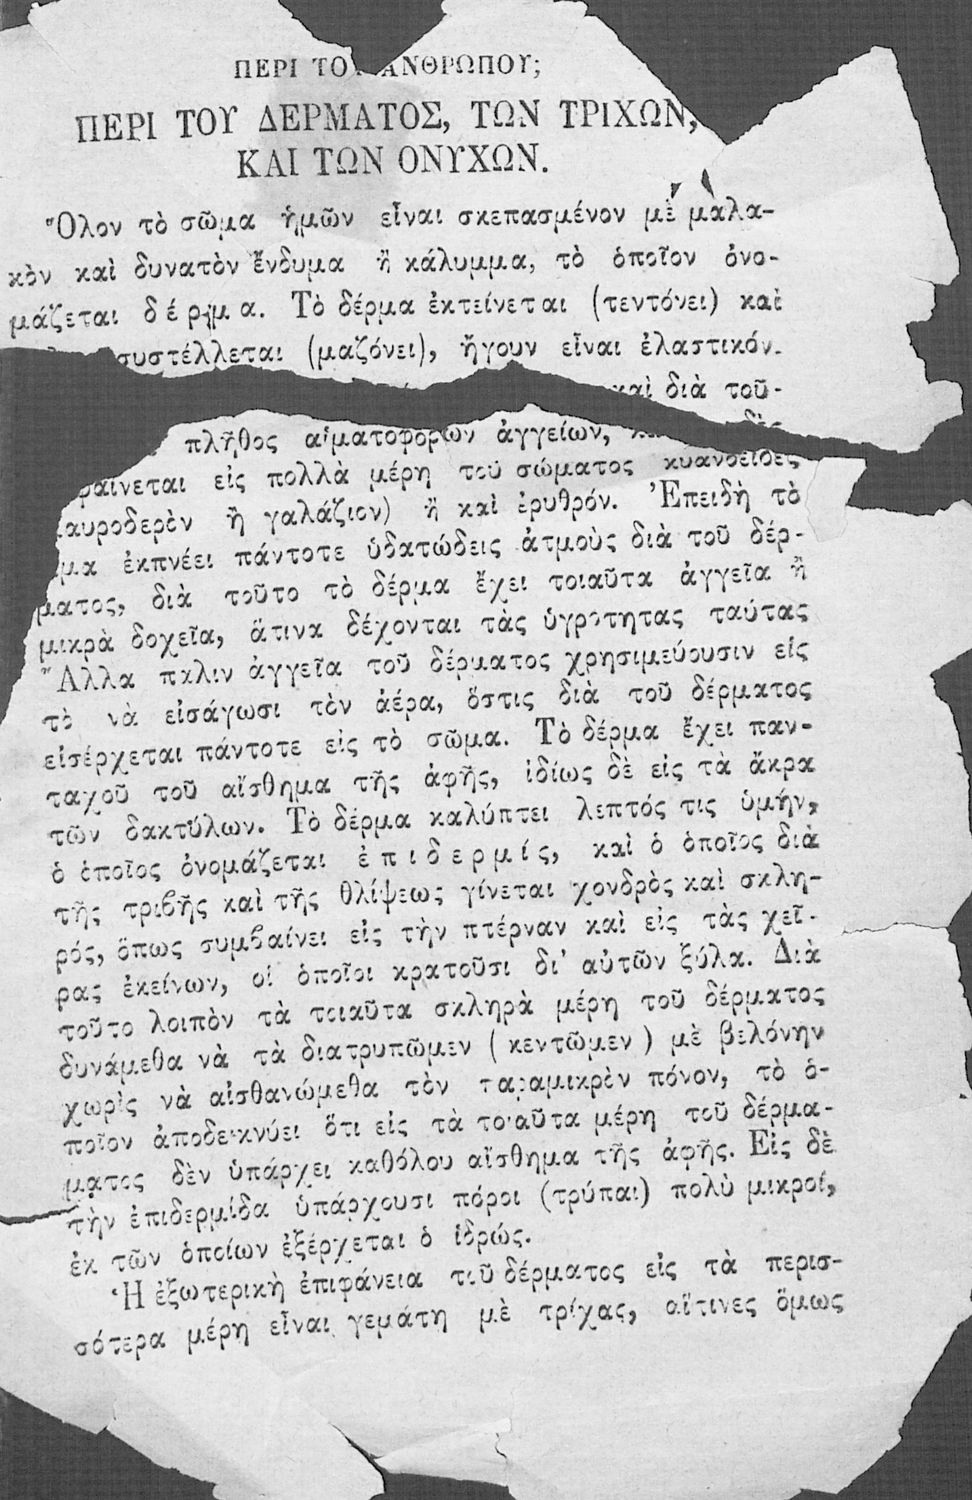 ΠΕΡΙ ΤΟΥ ΑΝΘΡΩΠΟΥ;
ΠΕΡΙ ΤΟΥ ΔΕΡΜΑΤΟΣ, ΤΩΝ ΤΡΙΧΩΝ,
ΚΑΙ ΤΩΝ ΟΝΥΧΩΝ.
Ὅλον τὸ σῶμα ἡμῶν εἶναι σκεπασμένον μὲ μαλα-
κὸν καὶ δυνατὸν ἔνδυμα ἢ κάλυμμα, τὸ ὁποῖον ὀνο-
μάζεται δέρμα. Τὸ δέρμα ἐκτείνεται (τεντόνει) καὶ
συστέλλεται (μαζόνει), ἤγουν εἶναι ἐλαστικόν.
καὶ διὰ τοῦ-
πλῆθος αἱματοφόρων ἀγγείων,
φαίνεται εἰς πολλὰ μέρη τοῦ σώματος κυανοειδὲς
μαυροδερὸν ἢ γαλάζιον) ἢ καὶ ἐρυθρόν. Ἐπειδὴ τὸ
ἐκπνέει πάντοτε ὑδατώδεις ἀτμοὺς διὰ τοῦ δέρ-
ματος, διὰ τοῦτο τὸ δέρμα ἔχει τοιαῦτα ἀγγεῖα ἢ
μικρὰ δοχεῖα, ἅτινα δέχονται τὰς ὑγρότητας ταύτας
Ἄλλα πάλιν ἀγγεῖα τοῦ δέρματος χρησιμεύουσιν εἰς
τὸ νὰ εἰσάγωσι τὸν ἀέρα, ὅστις διὰ τοῦ δέρματος
εἰσέρχεται πάντοτε εἰς τὸ σῶμα. Τὸ δέρμα ἔχει παν-
ταχοῦ τοῦ αἴσθημα τῆς ἁφῆς, ἰδίως δὲ εἰς τὰ ἄκρα
τῶν δακτύλων. Τὸ δέρμα καλύπτει λεπτός τις ὑμήν,
ὁ ὁποῖος ὀνομάζεται ἐπιδερμίς, καὶ ὁ ὁποῖος διὰ
τῆς τριβῆς καὶ τῆς θλίψεως γίνεται χονδρὸς καὶ σκλη-
ρός, ὅπως συμβαίνει εἰς τὴν πτέρναν καὶ εἰς τὰς χεῖ-
ρας ἐκείνων, οἱ ὁποῖοι κρατοῦσι δι' αὐτῶν ξύλα. Διὰ
τοῦτο λοιπὸν τὰ τοιαῦτα σκληρὰ μέρη τοῦ δέρματος
δυνάμεθα νὰ τὰ διατρυπῶμεν (κεντῶμεν) μὲ βελόνην
χωρὶς νὰ αἰσθανώμεθα τὸν παραμικρὸν πόνον, τὸ ὁ-
ποῖον ἀποδεικνύει ὅτι εἰς τὰ τοιαῦτα μέρη τοῦ δέρμα-
ματος δὲν ὑπάρχει καθόλου αἴσθημα τῆς ἁφῆς. Εἰς δὲ
τὴν ἐπιδερμίδα ὑπάρχουσι πόροι (τρύπαι) πολὺ μικροί,
ἐκ τῶν ὁποίων ἐξέρχεται ὁ ἱδρώς.
Ἡ ἐξωτερικὴ ἐπιφάνεια τοῦ δέρματος εἰς τὰ περισ-
σότερα μέρη εἶναι γεμάτη μὲ τρίχας, αἵτινες ὅμως